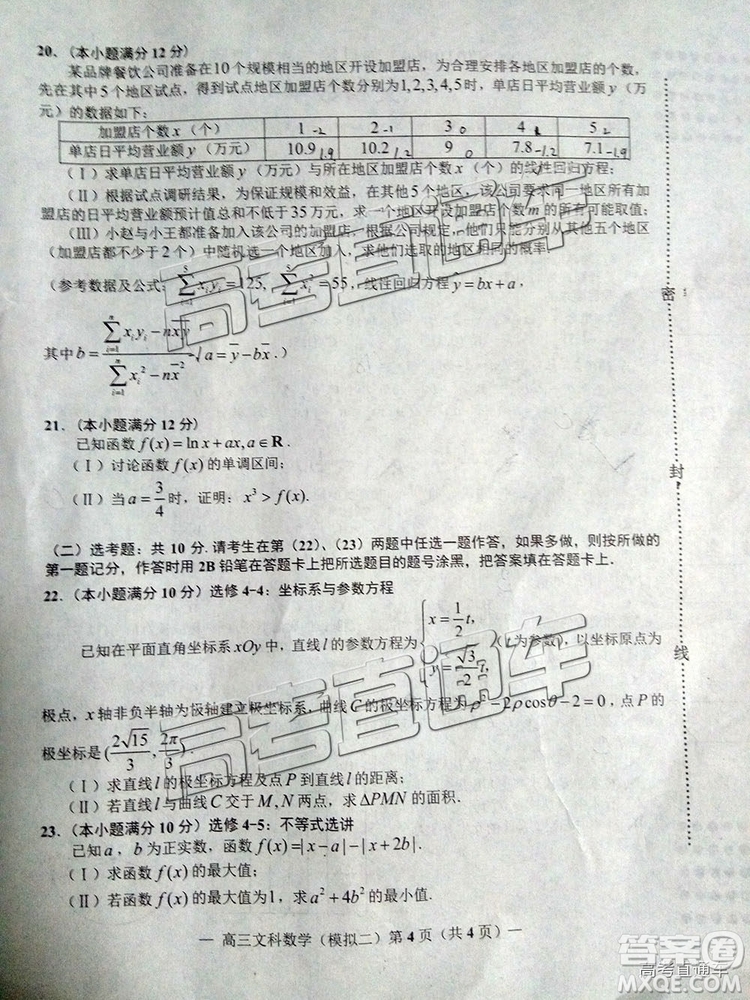 20．（本小题满分12分）
某品牌餐饮公司准备在10个规模相当的地区开设加盟店，为合理安排各地区加盟店的个数，
先在其中5个地区试点，得到试点地区加盟店个数分别为1,2,3,4,5时，单店日平均营业额y（万
元）的数据如下：
加盟店个数x（个） 1 -2 2 -1 3 0 4 1 5 2
单店日平均营业额y（万元） 10.9 1.9 10.2 1.2 9 0 7.8 -1.2 7.1 -1.9
（Ⅰ）求单店日平均营业额y（万元）与所在地区加盟店个数x（个）的线性回归方程；
（Ⅱ）根据试点调研结果，为保证规模和效益，在其他5个地区，该公司要求同一地区所有加
盟店的日平均营业额预计值总和不低于35万元，求一个地区开设加盟店个数m的所有可能取值；
（Ⅲ）小赵与小王都准备加入该公司的加盟店，根据公司规定，他们只能分别从其他五个地区
（加盟店都不少于2个）中随机选一个地区加入，求他们选取的地区相同的概率．
（参考数据及公式：∑_{i=1}^{5} x_i y_i = 125，∑_{i=1}^{5} x_i² = 55，线性回归方程 ŷ = bx + a，
其中 b = (∑_{i=1}^{n} x_i y_i − n x̄ ȳ) / (∑_{i=1}^{n} x_i² − n x̄²)，a = ȳ − b x̄．）
21．（本小题满分12分）
已知函数 f(x) = ln x + ax, a∈R．
（Ⅰ）讨论函数 f(x) 的单调区间；
（Ⅱ）当 a = 3/4 时，证明：x³ > f(x)．
（二）选考题：共10分.请考生在第（22）、（23）两题中任选一题作答，如果多做，则按所做的
第一题记分，作答时用2B铅笔在答题卡上把所选题目的题号涂黑，把答案填在答题卡上．
22．（本小题满分10分）选修4-4：坐标系与参数方程
已知在平面直角坐标系xOy中，直线l的参数方程为 { x = 1/2 t, y = √3/2 t, （t为参数），以坐标原点为
极点，x轴非负半轴为极轴建立极坐标系，曲线C的极坐标方程为 ρ² − 2ρcosθ − 2 = 0，点P的
极坐标是 (2√15/3, 2π/3)．
（Ⅰ）求直线l的极坐标方程及点P到直线l的距离；
（Ⅱ）若直线l与曲线C交于M,N两点，求△PMN的面积．
23．（本小题满分10分）选修4-5：不等式选讲
已知a，b为正实数，函数 f(x) = |x − a| − |x + 2b|．
（Ⅰ）求函数 f(x) 的最大值；
（Ⅱ）若函数 f(x) 的最大值为1，求 a² + 4b² 的最小值．
— 高三文科数学（模拟二）第4页（共4页）—
密
封
线
高考直通车
高考直通车
答案圈
高考直通车
MXQE.COM